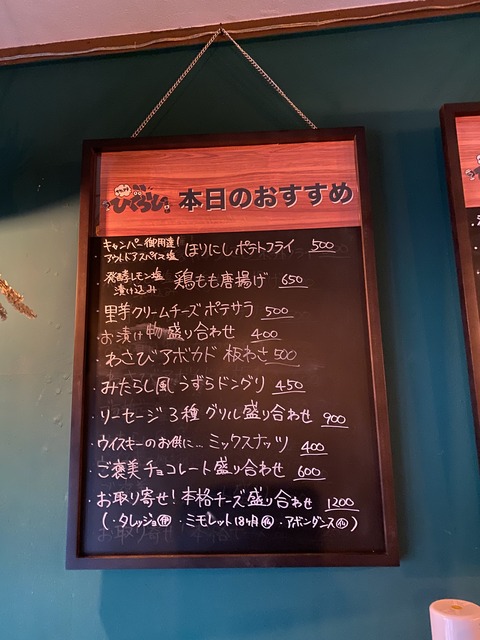 ひぐらし 本日のおすすめ
キャンパー御用達!
アウトドアスパイス塩 ほりにしポテトフライ 500
発酵レモン塩
漬け込み 鶏もも唐揚げ 650
里芋クリームチーズポテサラ 500
お漬け物盛り合わせ 400
わさびアボカド 板わさ 500
みたらし風うずらドングリ 450
ソーセージ3種グリル盛り合わせ 900
ウイスキーのお供に… ミックスナッツ 400
ご褒美チョコレート盛り合わせ 600
お取り寄せ!本格チーズ盛り合わせ 1200
(・タレッジョ伊 ・ミモレット18ヶ月仏 ・アボンダンス仏)